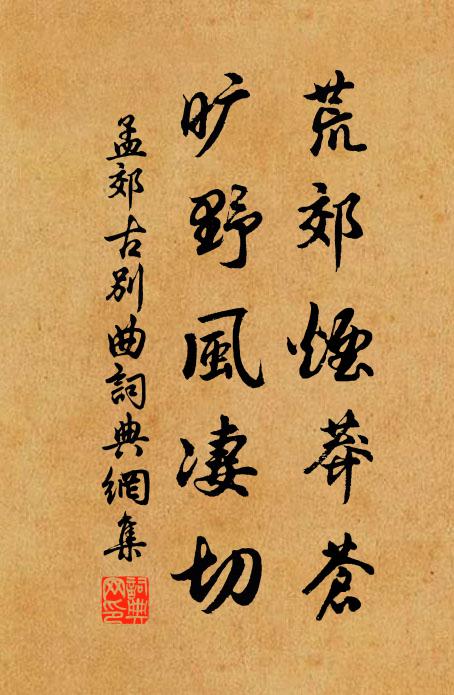 荒郊煙莽蒼
旷野風凄切
孟郊古别曲詞典網集
詞典网印